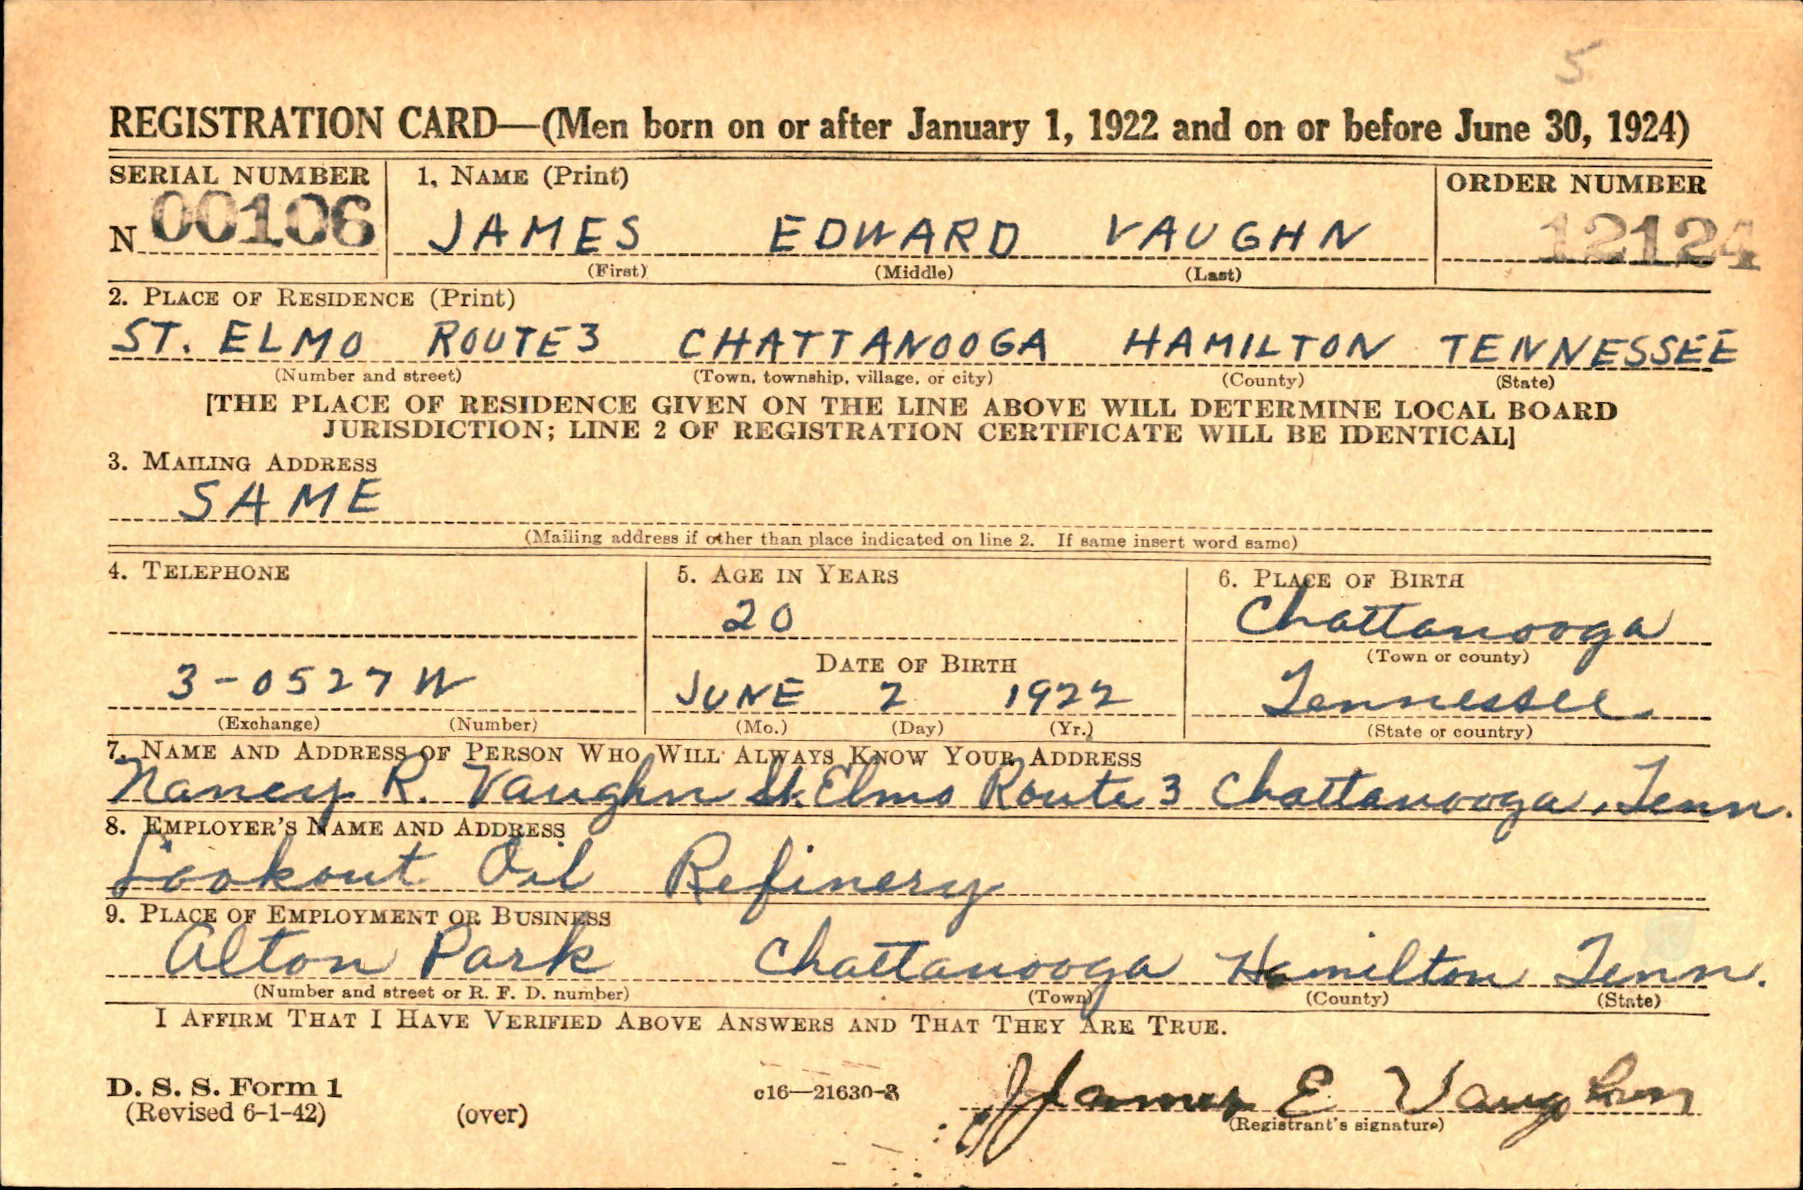 5
REGISTRATION CARD—(Men born on or after January 1, 1922 and on or before June 30, 1924)
SERIAL NUMBER
1. NAME (Print)
ORDER NUMBER
N 00106
JAMES EDWARD VAUGHN
12124
(First) (Middle) (Last)
2. PLACE OF RESIDENCE (Print)
ST. ELMO ROUTE 3 CHATTANOOGA HAMILTON TENNESSEE
(Number and street) (Town, township, village, or city) (County) (State)
[THE PLACE OF RESIDENCE GIVEN ON THE LINE ABOVE WILL DETERMINE LOCAL BOARD
JURISDICTION; LINE 2 OF REGISTRATION CERTIFICATE WILL BE IDENTICAL]
3. MAILING ADDRESS
SAME
(Mailing address if other than place indicated on line 2. If same insert word same)
4. TELEPHONE
5. AGE IN YEARS
6. PLACE OF BIRTH
20
Chattanooga
(Town or county)
DATE OF BIRTH
3-0527W
JUNE 2 1922
Tennessee
(Exchange) (Number)
(Mo.) (Day) (Yr.)
(State or country)
7. NAME AND ADDRESS OF PERSON WHO WILL ALWAYS KNOW YOUR ADDRESS
Nancy R. Vaughn St. Elmo Route 3 Chattanooga, Tenn.
8. EMPLOYER'S NAME AND ADDRESS
Lookout Oil Refinery
9. PLACE OF EMPLOYMENT OR BUSINESS
Alton Park Chattanooga Hamilton Tenn.
(Number and street or R. F. D. number) (Town) (County) (State)
I AFFIRM THAT I HAVE VERIFIED ABOVE ANSWERS AND THAT THEY ARE TRUE.
D. S. S. Form 1
(Revised 6-1-42) (over)
c16—21630-3
James E Vaughn
(Registrant's signature)